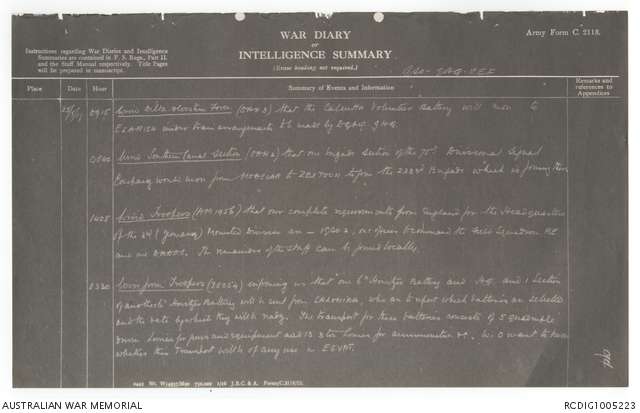 WAR DIARY
or
INTELLIGENCE SUMMARY
(Erase heading not required.)
Army Form C. 2118.
Instructions regarding War Diaries and Intelligence
Summaries are contained in F. S. Regs., Part II.
and the Staff Manual respectively. Title Pages
will be prepared in manuscript.
Place
Date
Hour
Summary of Events and Information
Remarks and
references to
Appendices
0915 that the Calcutta Volunteer Battery will move to
EL ARISH under train arrangements to be made by
Wired Southern Canal Section that one brigade section of the 75th Divisional Signal
Company would move from MOASCAR to ZEITOUN to join the 233rd Brigade which is forming there
1405 Wired Troopers that our complete requirements from England for the Headquarters
of the (Yeomanry) Mounted Division are - one officer to command the Field Squadron RE
and one The remainder of the staff can be found locally.
2320 Wire from Troopers informing us that one 6" Howitzer Battery and HQ and 1 Section
of another 6" Howitzer Battery will be sent from SALONIKA, who are to report which batteries are selected
and the date by which they will be ready. The transport for these batteries consists of
lorries for guns and equipment and 13 3 ton lorries for ammunition &c. W.O want to know
whether this Transport will be of any use in EGYPT.
AUSTRALIAN WAR MEMORIAL
RCDIG1005223